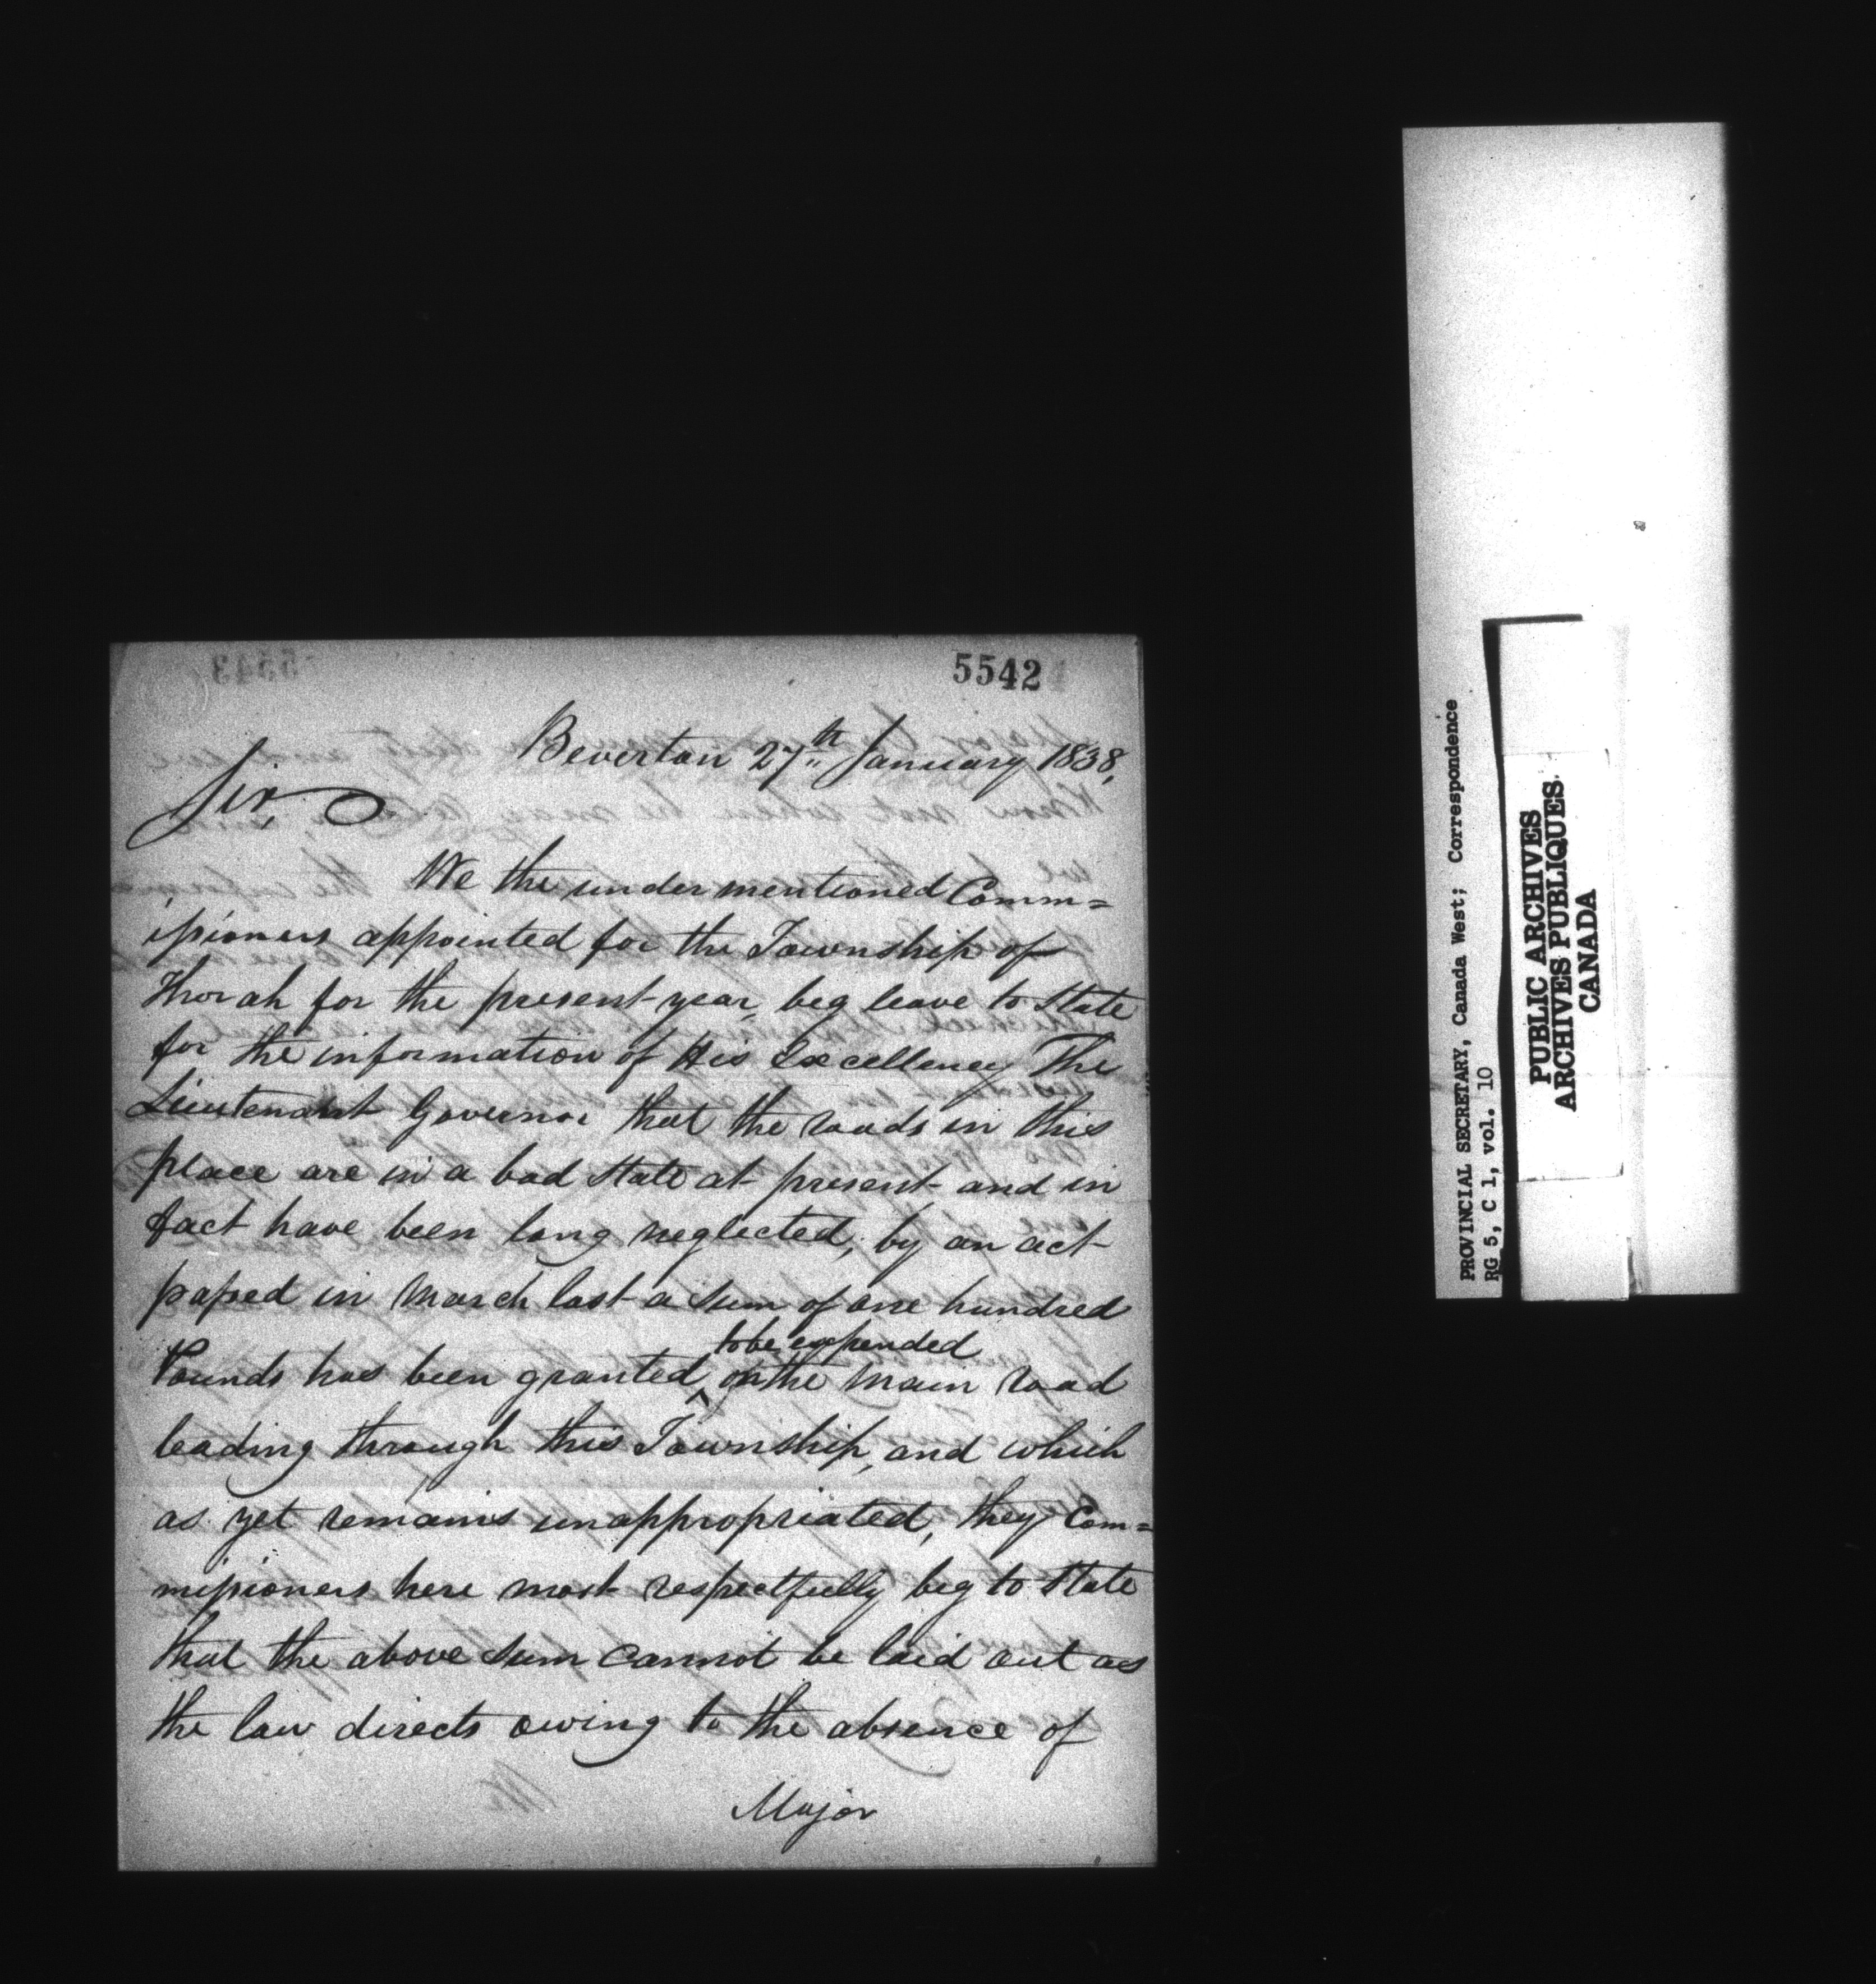 5542
Beverton 27th January 1838,
Sir,
We the undermentioned Comm=
issioners appointed for the Township of
Thorah for the present year, beg leave to state
for the information of His Excellency The
Lieutenant Governor that the roads in this
place are in a bad state at present and in
fact have been long neglected, by an act
passed in March last a sum of one hundred
to be expended
Pounds has been granted ^ on the Main road
leading through this Township, and which
as yet remains unappropriated, they Com=
missioners here most respectfully beg to state
that the above sum cannot be laid out as
the law directs owing to the absence of
Major
PROVINCIAL SECRETARY, Canada West; Correspondence
RG 5, C 1, vol. 10
PUBLIC ARCHIVES
ARCHIVES PUBLIQUES
CANADA